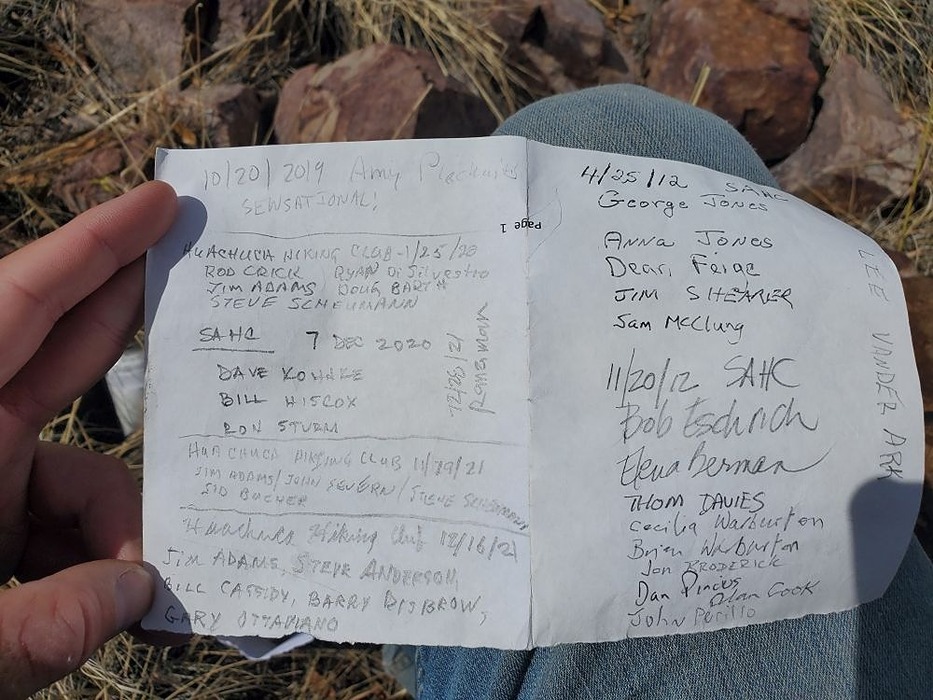 10/20/2019 Amy
SEWSATIONAL!
Page 1
HUACHUCA HIKING CLUB-1/25/20
ROD CRICK / RYAN DiSilvestro
JIM ADAMS / DOUG BARTH
STEVE SCHEUMANN
SAHC 7 DEC 2020
DAVE
BILL HISCOX
RON STURM
HUACHUCA HIKING CLUB 11/29/21
JIM ADAMS/ JOHN SEVERN / STEVE
SID BUCHER
Huachuca Hiking Club 12/16/21
Jim ADAMS, STEVE ANDERSON,
BILL CASSIDY, BARRY DISBROW,
GARY OTTAVIANO
4/25/12 SAHC
George Jones
Anna Jones
Dean Feige
JIM SHEARER
Sam McClung
11/20/12 SAHC
Bob Eschrich
Elena Berman
THOM DAVIES
Cecilia Warburton
Brian Warburton
Jon BRODERICK
Dan Pincus
Alan Cook
John Perillo
LEE VANDER ARK